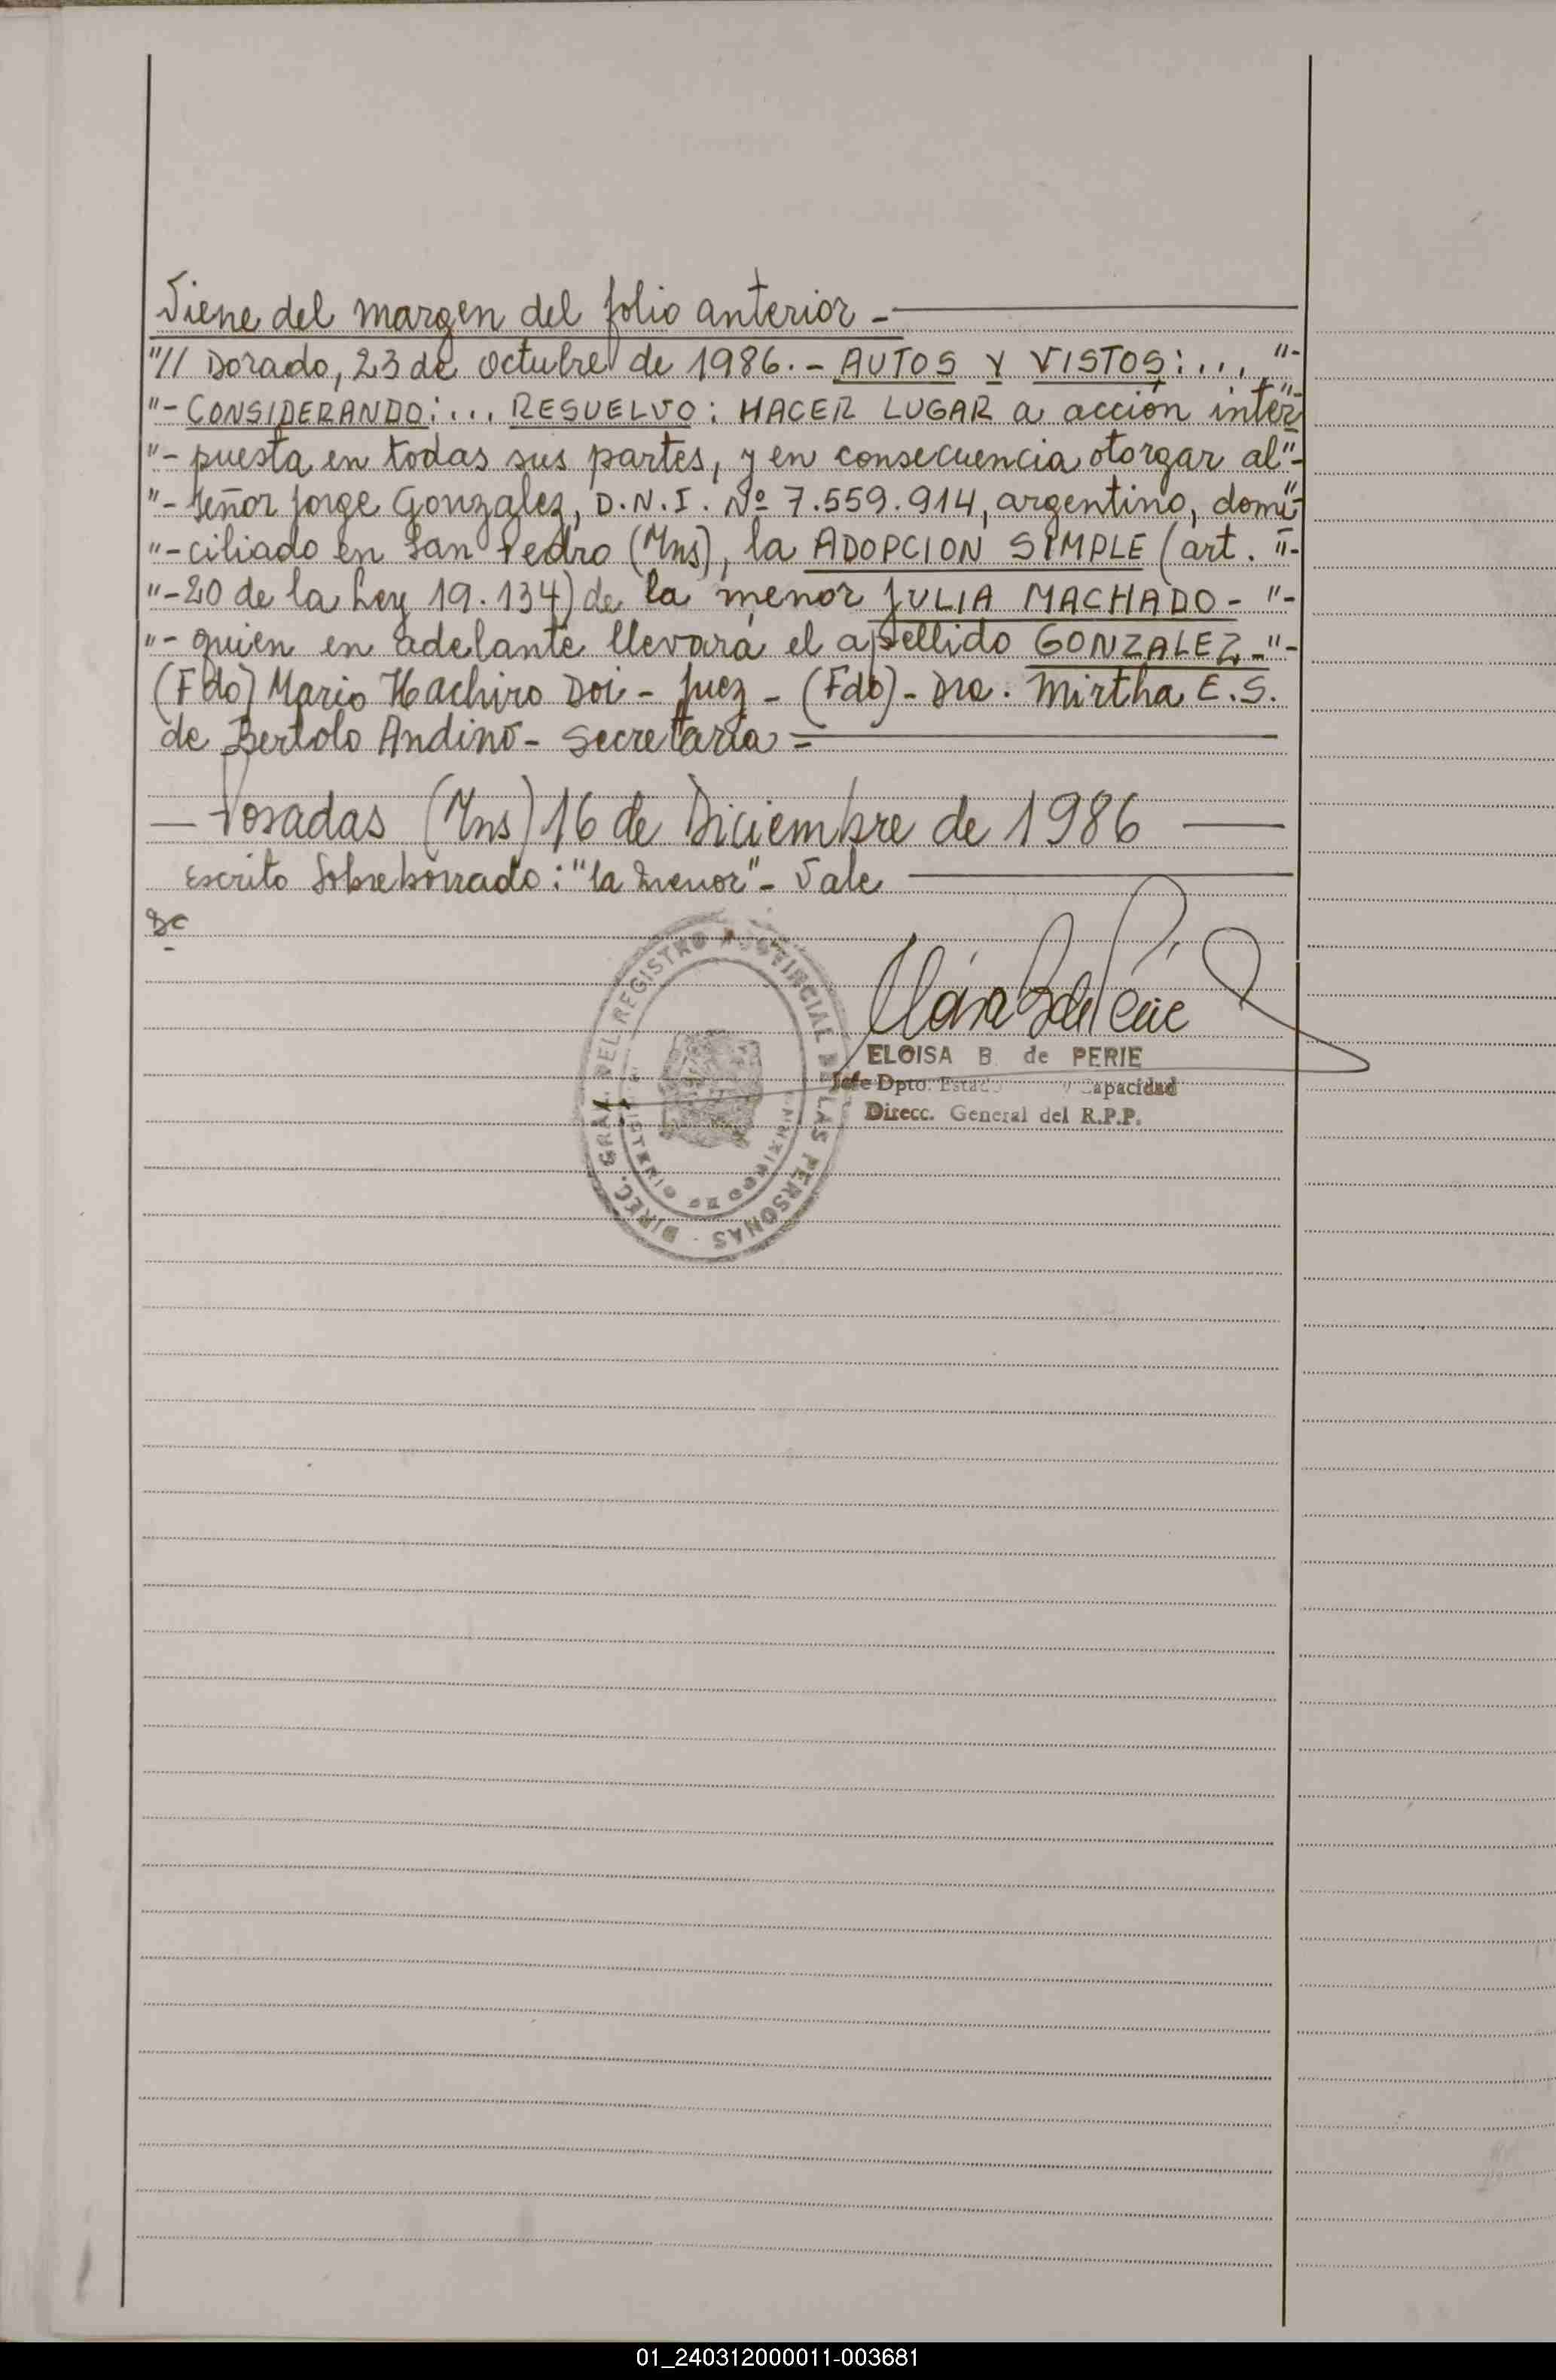 Viene del margen del folio anterior -
"// Dorado, 23 de Octubre de 1986.- AUTOS Y VISTOS:...."-
"- CONSIDERANDO:... RESUELVO: HACER LUGAR a acción inter"-
"- puesta en todas sus partes, y en consecuencia otorgar al"-
"- Señor Jorge Gonzalez, D.N.I. Nº 7.559.914, argentino, domi"-
"- ciliado en San Pedro (Mns), la ADOPCION SIMPLE (art. "-
"- 20 de la Ley 19.134) de la menor JULIA MACHADO - "-
"- quien en adelante llevará el apellido GONZALEZ.-"-
(Fdo) Mario Hachiro Doi - Juez - (Fdo) - Dra. Mirtha E.S.
de Bertolo Andino - Secretaria -
— Posadas (Mns) 16 de Diciembre de 1986 —
Escrito Sobreborrado: "la menor" - Vale
DIREC. GRAL. DEL REGISTRO PROVINCIAL DE LAS PERSONAS
ELOISA B. de PERIE
Jefe Dpto. Estado y Capacidad
Direcc. General del R.P.P.
01_240312000011-003681